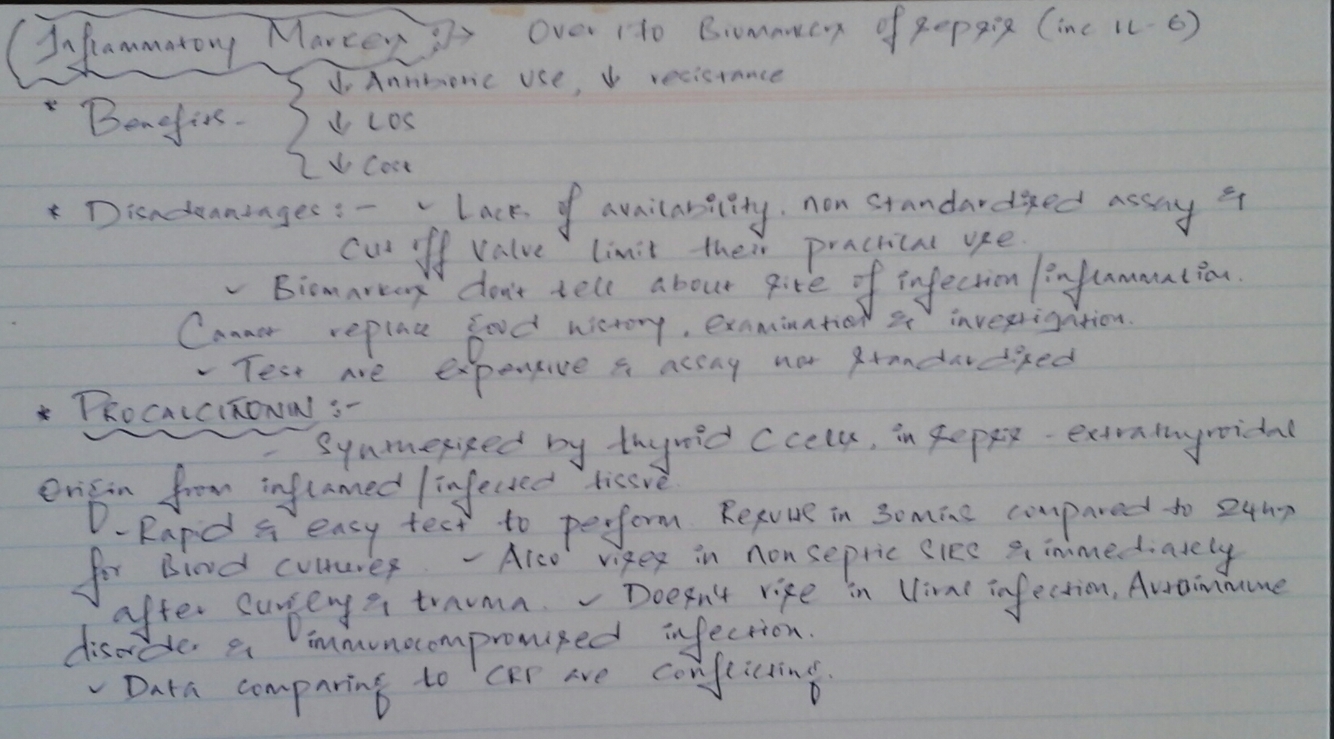 Inflammatory Markers :→ Over 170 Biomarkers of sepsis (inc IL-6)
↓ Antibiotic use, ↓ resistance
* Benefits - ↓ LOS
↓ Cost
* Disadvantages :- ✓ Lack of availability, non standardized assay &
Cut off value limit their practical use.
✓ Biomarkers don't tell about site of infection/inflammation.
Cannot replace good history, examination & investigation.
✓ Test are expensive & assay not standardized
* PROCALCITONIN :-
- Synthesized by thyroid C cells, in sepsis - extrathyroidal
Origin from inflamed/infected tissue.
- Rapid & easy test to perform Results in 30mins compared to 24hrs
for Blood cultures. - Also rises in non septic SIRS & immediately
after surgery & trauma. ✓ Doesn't rise in Viral infection, Autoimmune
disorder & immunocompromised infection.
✓ Data comparing to CRP are conflicting.